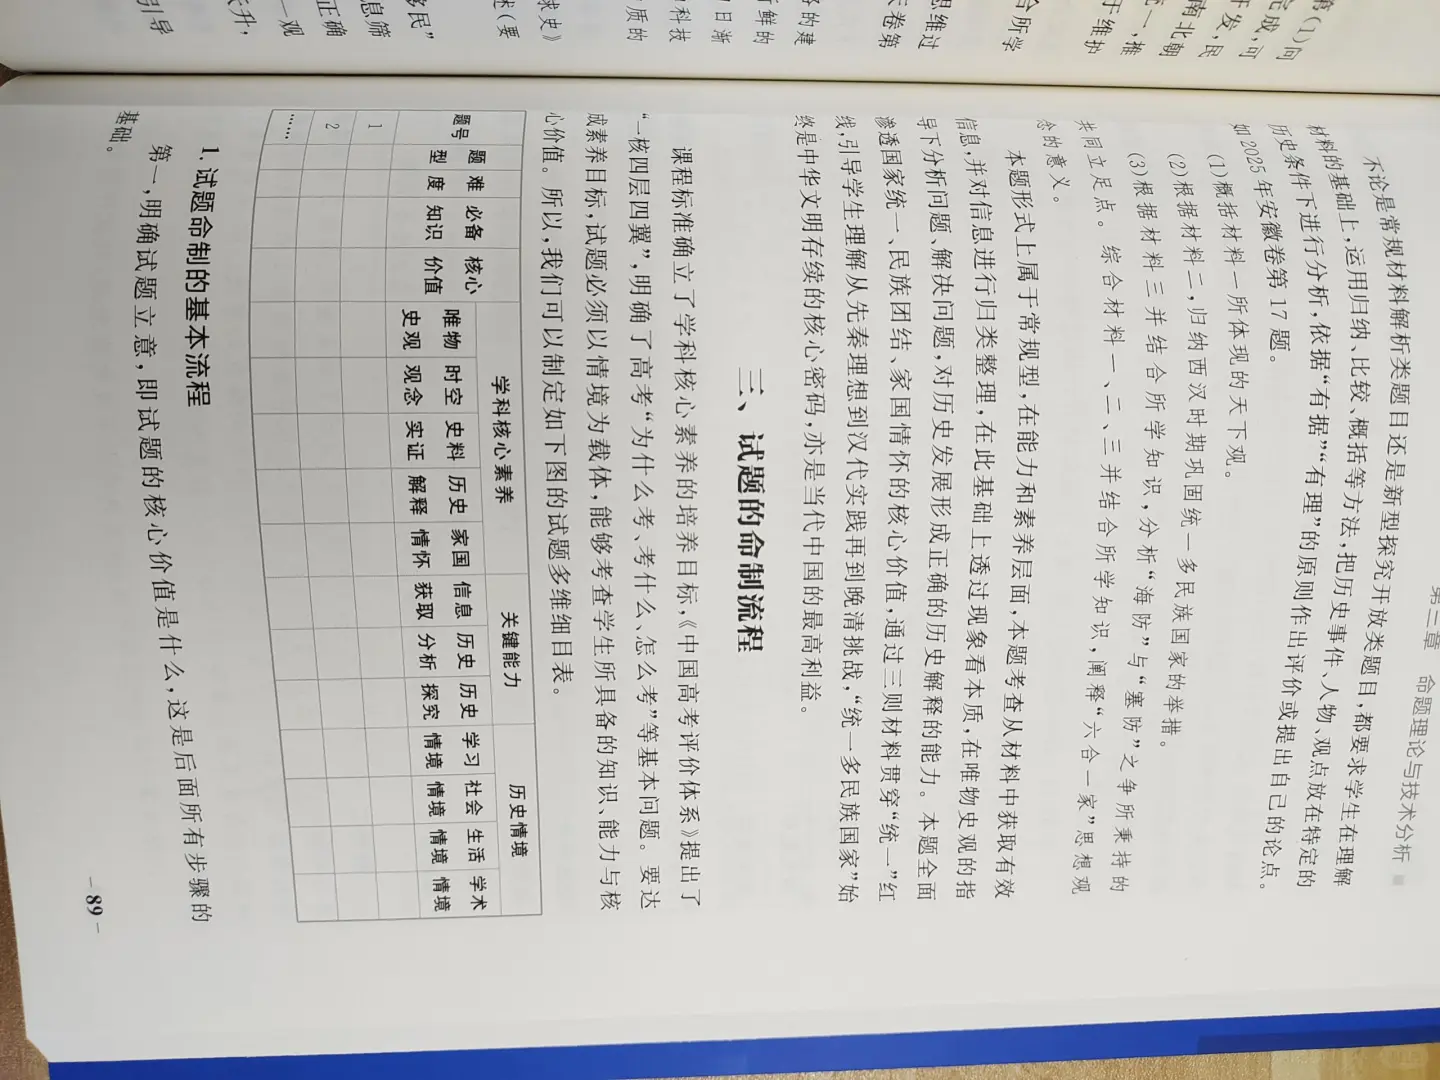 第三章 命题理论与技术分析
不论是常规材料解析类题目还是新型探究开放类题目，都要求学生在理解
材料的基础上，运用归纳、比较、概括等方法，把历史事件、人物、观点放在特定的
历史条件下进行分析，依据“有据”“有理”的原则作出评价或提出自己的论点。
如 2025 年安徽卷第 17 题。
(1)概括材料一所体现的天下观。
(2)根据材料二，归纳西汉时期巩固统一多民族国家的举措。
(3)根据材料三并结合所学知识，分析“海防”与“塞防”之争所秉持的
共同立足点。综合材料一、二、三并结合所学知识，阐释“六合一家”思想观
念的意义。
本题形式上属于常规型，在能力和素养层面，本题考查从材料中获取有效
信息，并对信息进行归类整理，在此基础上透过现象看本质，在唯物史观的指
导下分析问题、解决问题，对历史发展形成正确的历史解释的能力。本题全面
渗透国家统一、民族团结、家国情怀的核心价值，通过三则材料贯穿“统一”红
线，引导学生理解从先秦理想到汉代实践再到晚清挑战，“统一多民族国家”始
终是中华文明存续的核心密码，亦是当代中国的最高利益。
三、试题的命制流程
课程标准确立了学科核心素养的培养目标，《中国高考评价体系》提出了
“一核四层四翼”，明确了高考“为什么考、考什么、怎么考”等基本问题。要达
成素养目标，试题必须以情境为载体，能够考查学生所具备的知识、能力与核
心价值。所以，我们可以制定如下图的试题多维细目表。
题号 题型 难度 必备知识 核心价值 学科核心素养 关键能力 历史情境
唯物史观 时空观念 史料实证 历史解释 家国情怀 信息获取 历史分析 历史探究 学习情境 社会情境 生活情境 学术情境
1
2
……
1. 试题命制的基本流程
第一，明确试题立意，即试题的核心价值是什么，这是后面所有步骤的
基础。
– 89 –